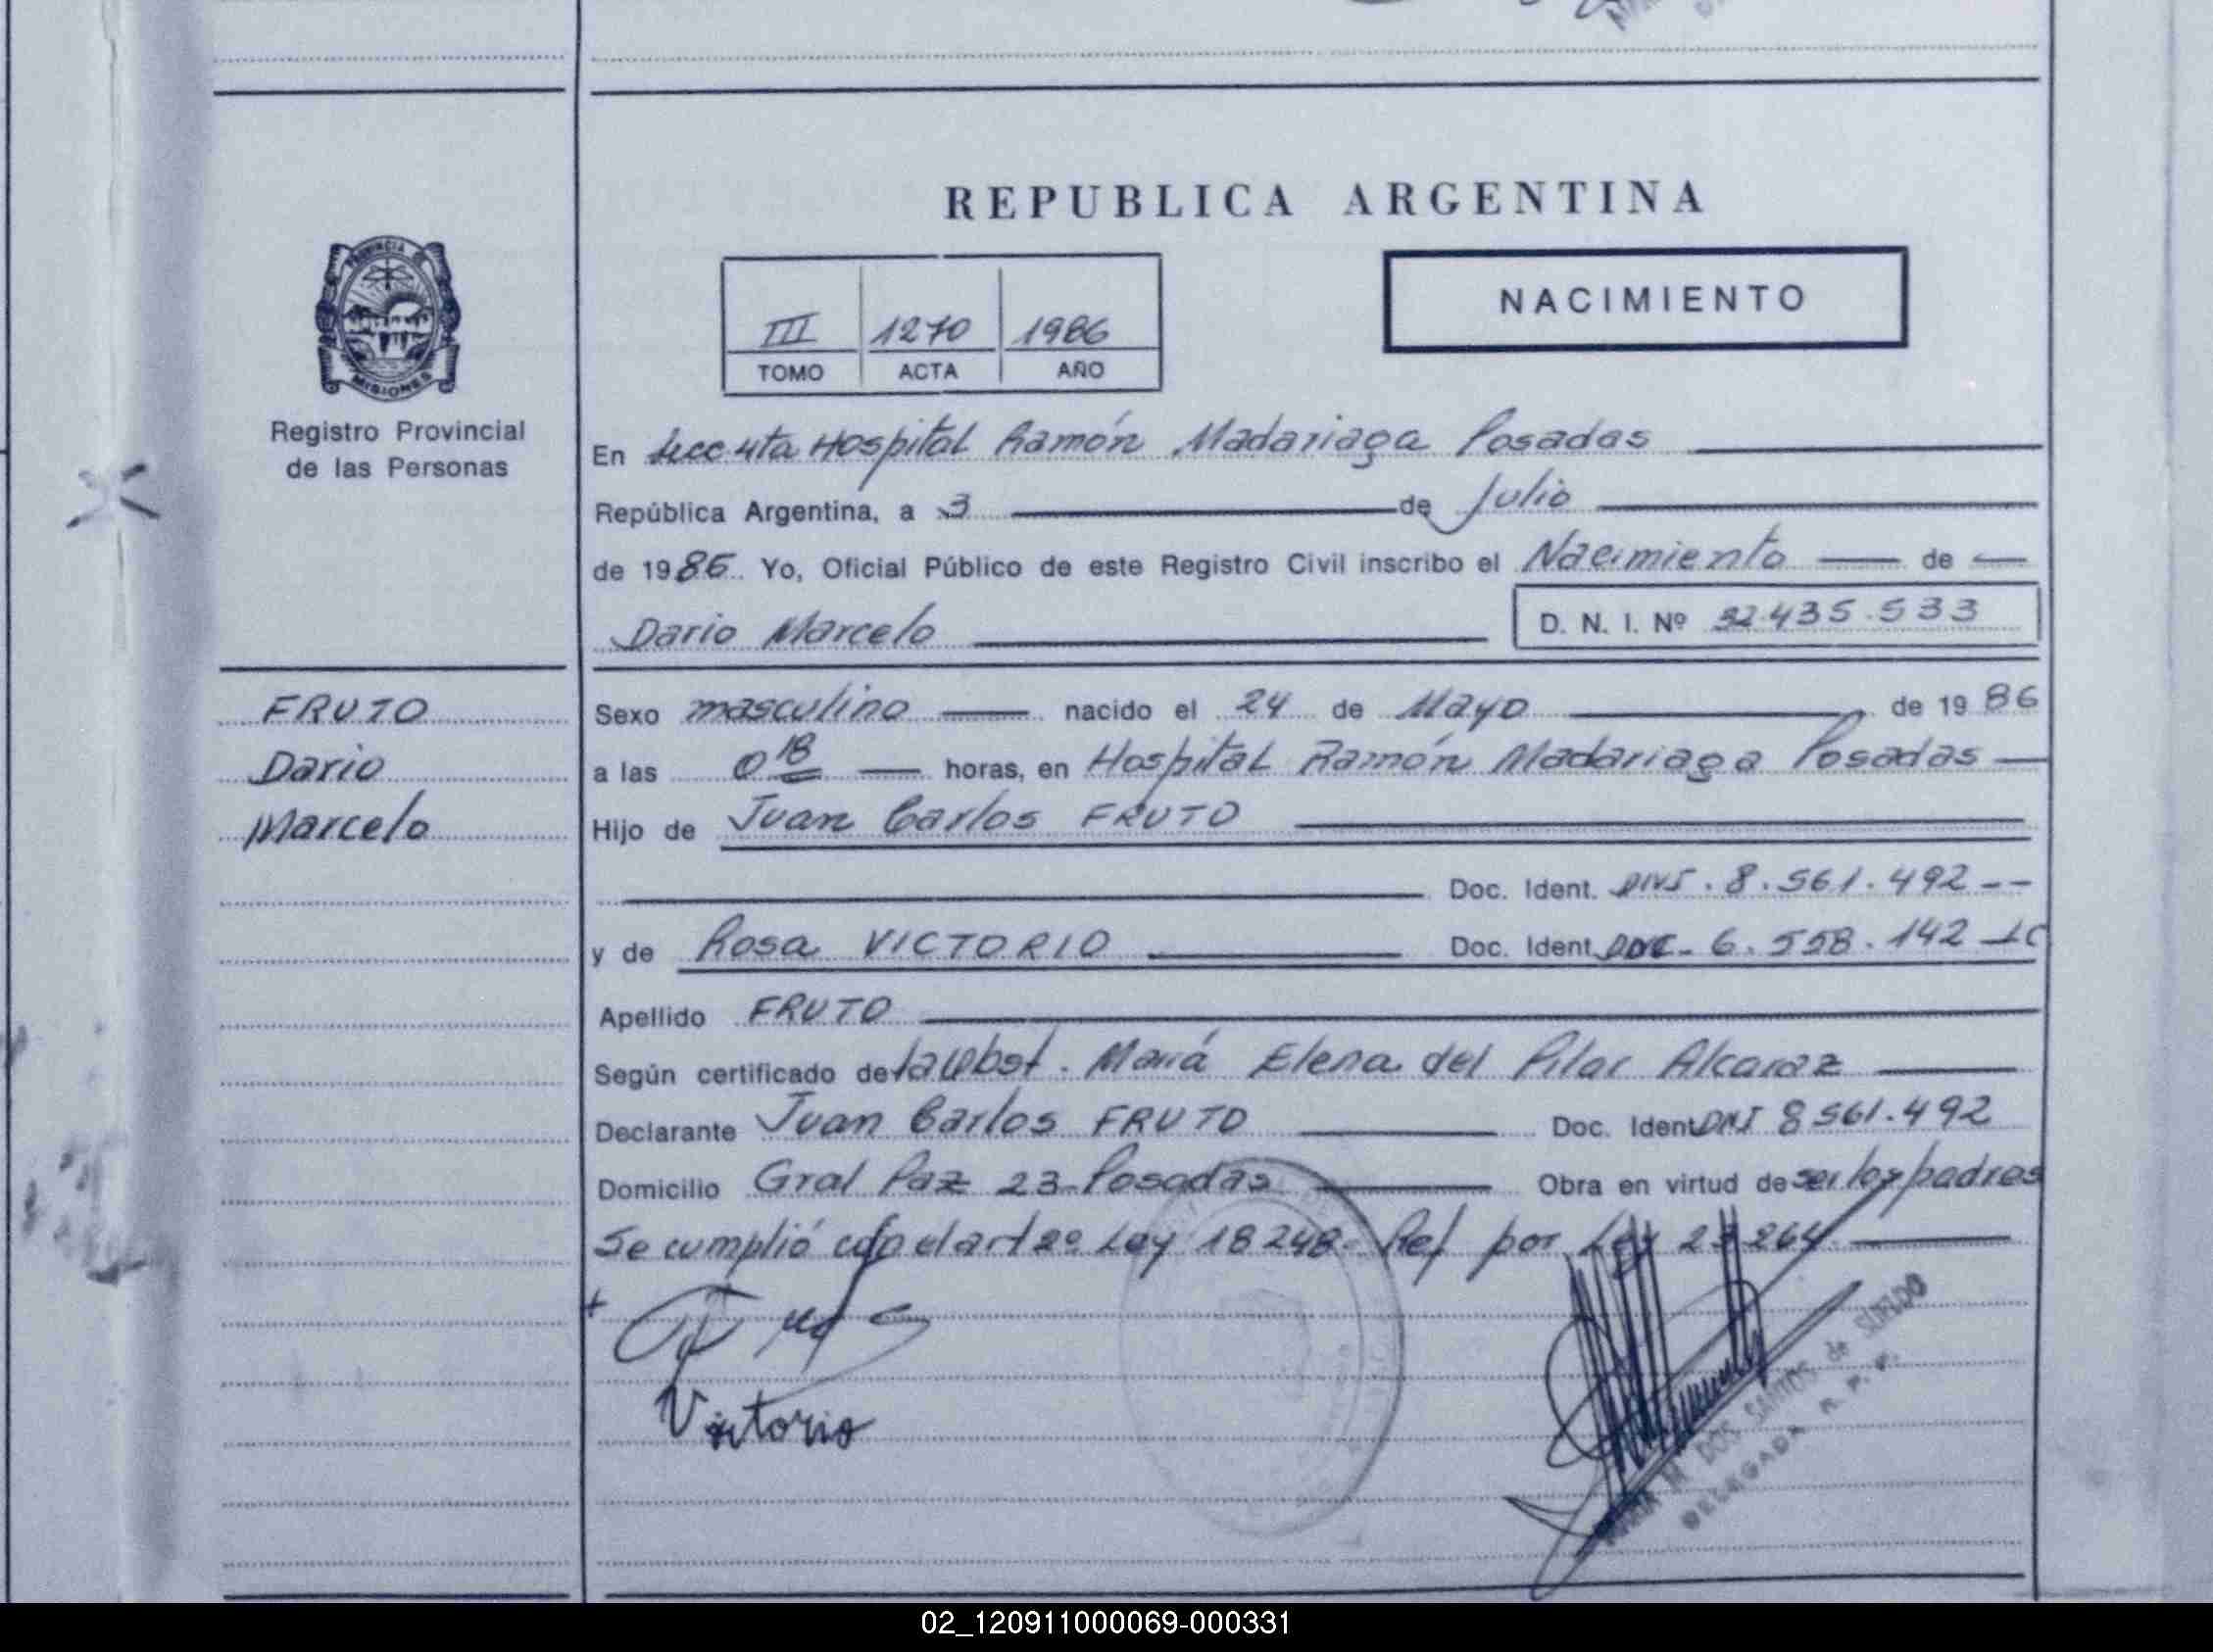 REPUBLICA ARGENTINA
PROVINCIA DE
MISIONES
Registro Provincial
de las Personas
III 1270 1986
TOMO ACTA AÑO
NACIMIENTO
En Secc 4ta Hospital Ramón Madariaga Posadas
República Argentina, a 3 de Julio
de 1986. Yo, Oficial Público de este Registro Civil inscribo el Nacimiento de
Dario Marcelo D. N. I. Nº 32.435.533
FRUTO
Dario
Marcelo
Sexo masculino nacido el 24 de Mayo de 1986
a las 0 18 horas, en Hospital Ramón Madariaga Posadas
Hijo de Juan Carlos FRUTO
Doc. Ident. DNI. 8.561.492 --
y de Rosa VICTORIO Doc. Ident. 6.558.142 LC
Apellido FRUTO
Según certificado de la Obst. María Elena del Pilar Alcaraz
Declarante Juan Carlos FRUTO Doc. Ident DNI 8561.492
Domicilio Gral Paz 23 Posadas Obra en virtud de ser los padres
Se cumplió con el art 2º Ley 18248 Ref por Ley 23264
Victorio
DOS SANTOS de SUELDO
DELEGADA R. P. P.
02_120911000069-000331